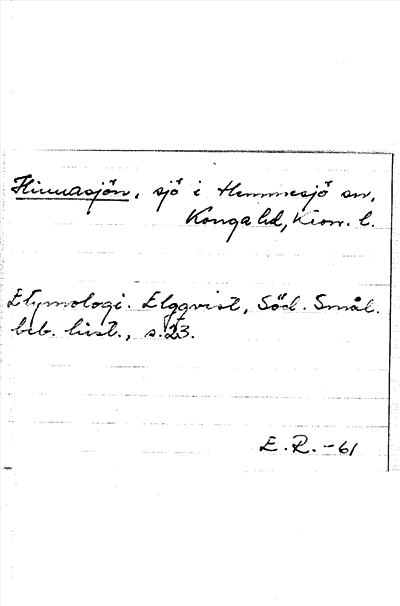 Himmasjön, sjö i Hemmesjö sn,
Konga hd, Kron. l.
Etymologi. Elgqvist, Söd. Smål.
beb. hist., s.23.
E.R.-61